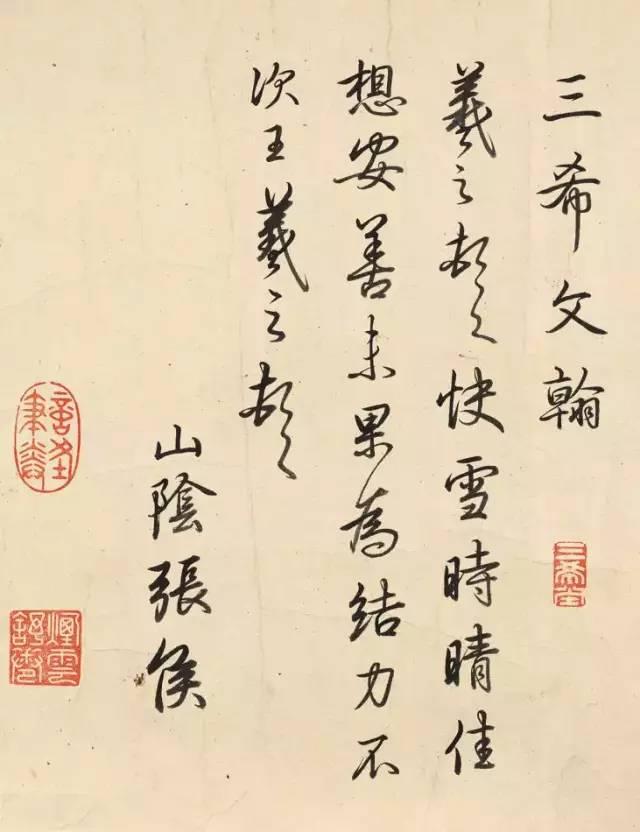 三希文翰
三希堂
羲之頓首快雪時晴佳
想安善未果為結力不
次王羲之頓首
山陰張侯